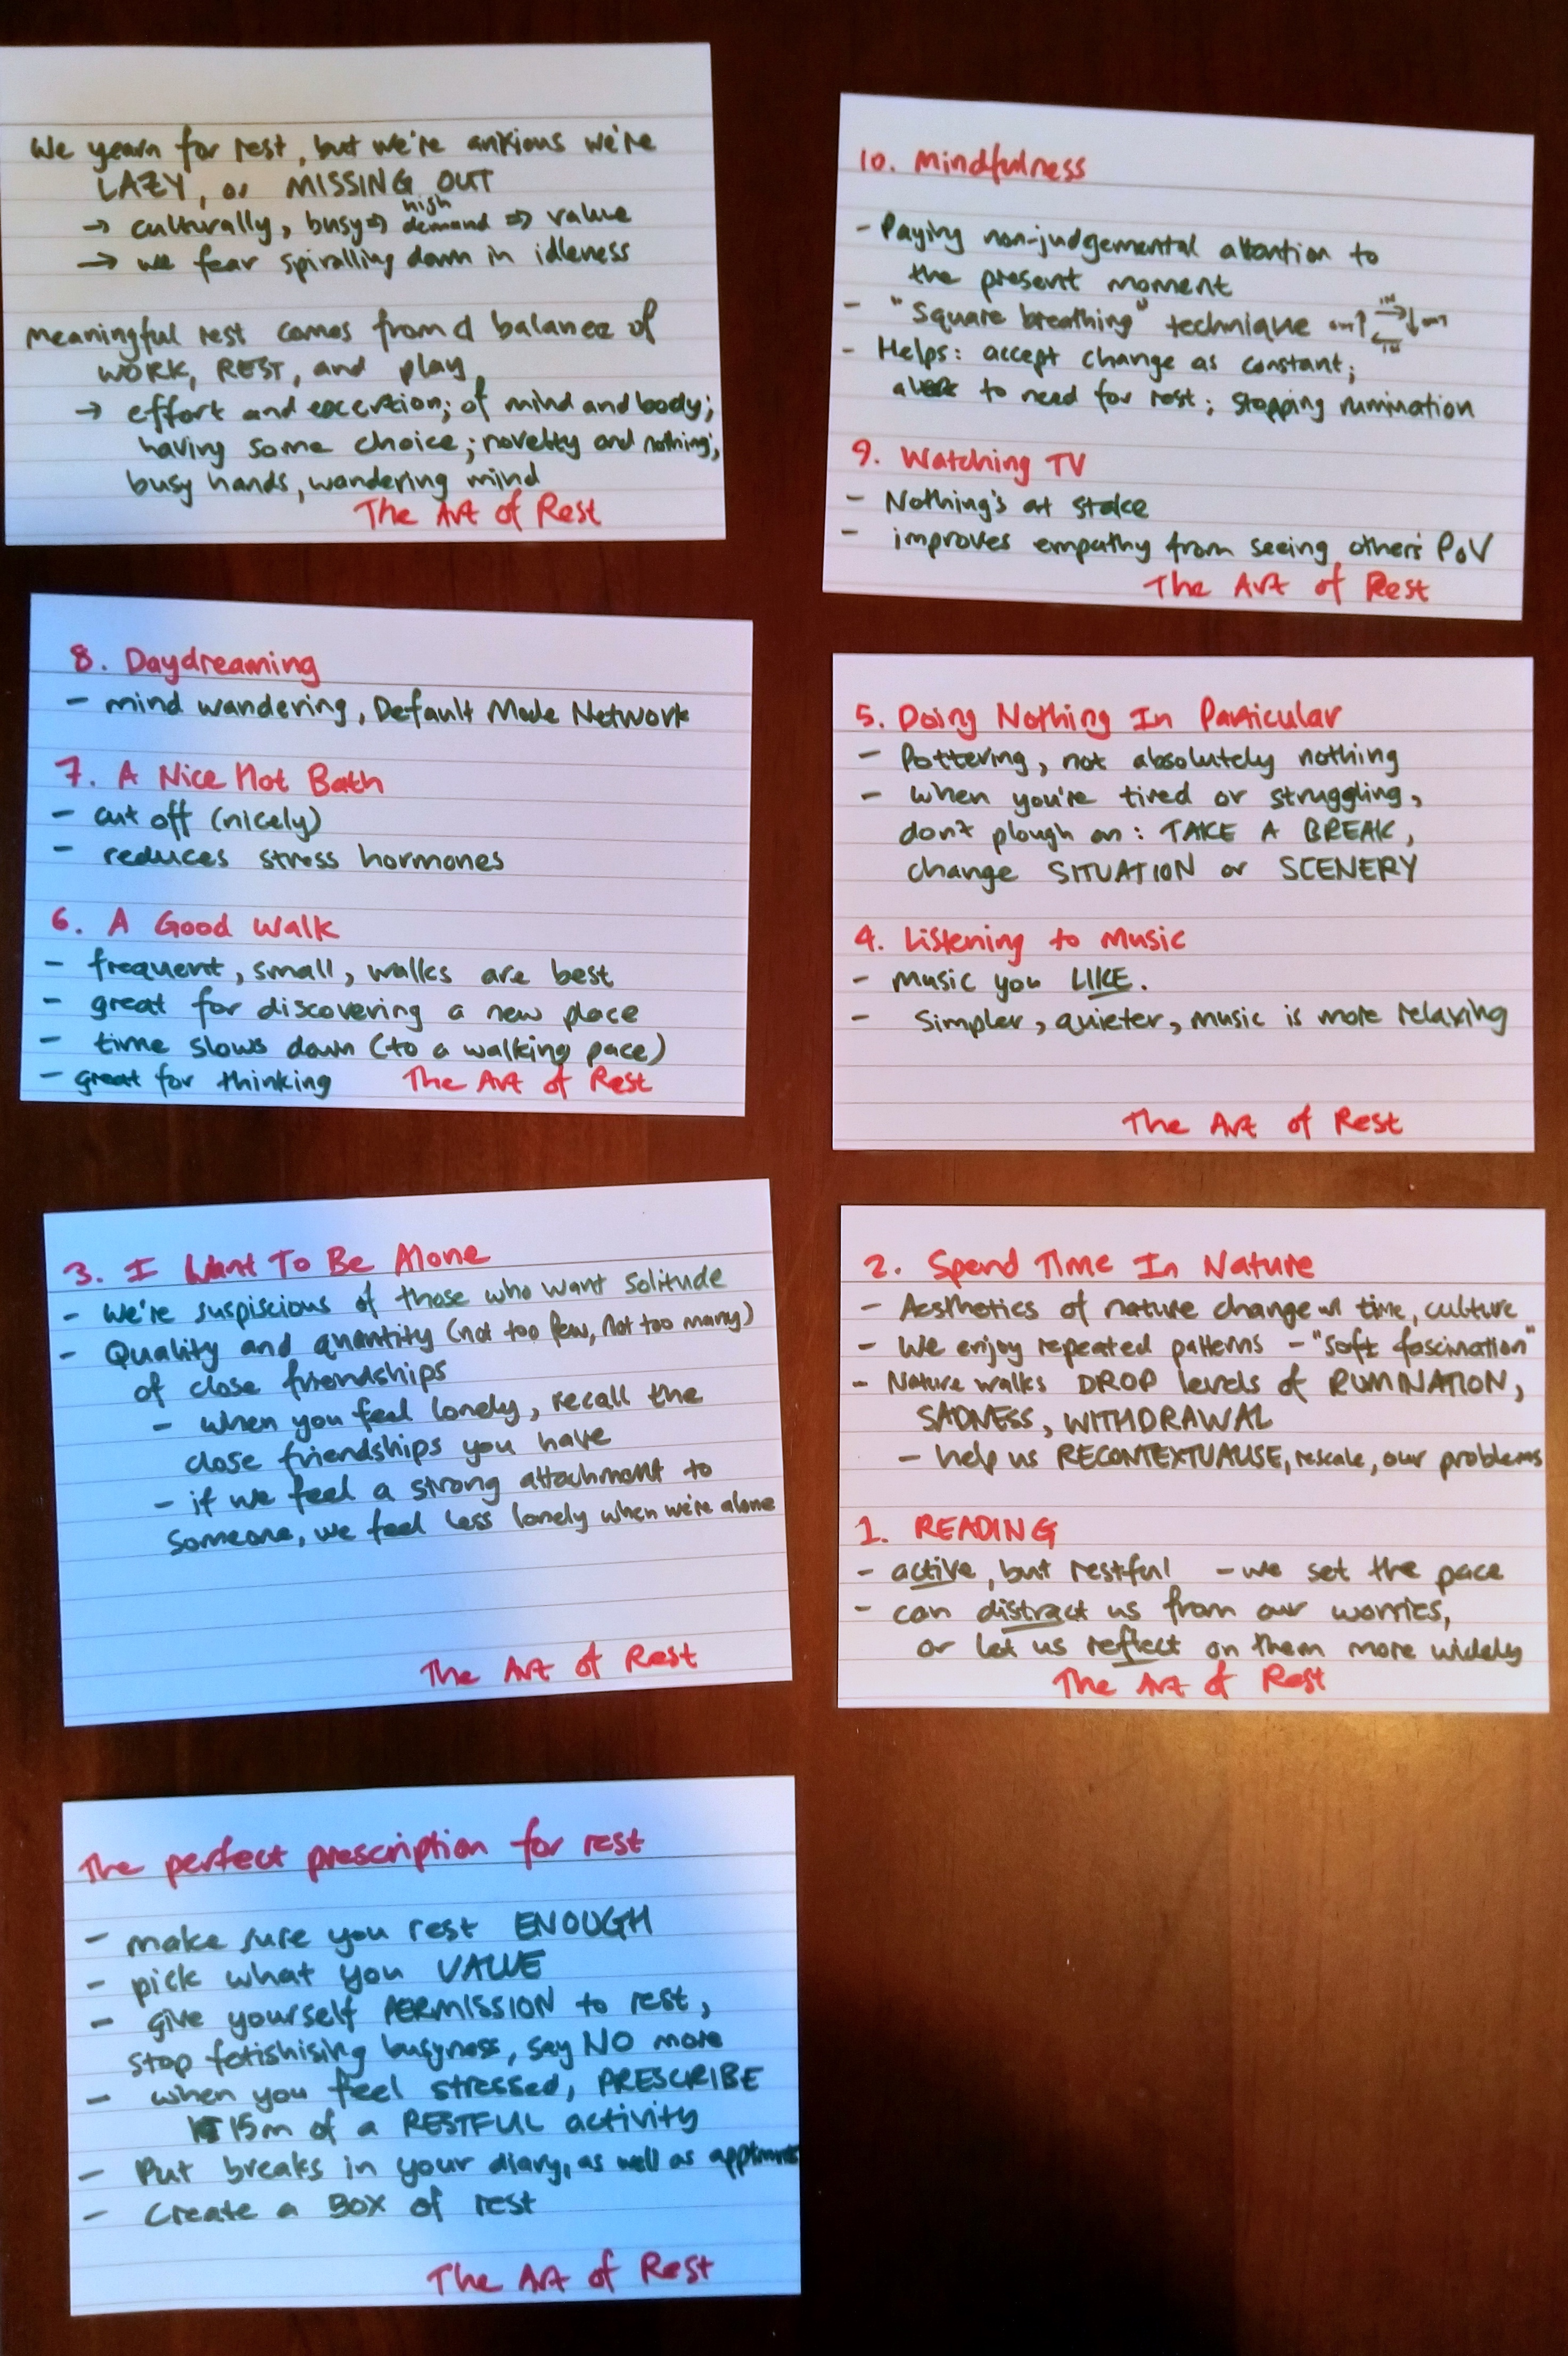 We yearn for rest, but we're anxious we're
LAZY, or MISSING OUT
→ culturally, busy ⇒ high demand ⇒ value
→ we fear spiralling down in idleness
Meaningful rest comes from a balance of
WORK, REST, and play
→ effort and exertion; of mind and body;
having some choice; novelty and nothing;
busy hands, wandering mind
The Art of Rest
10. Mindfulness
- Paying non-judgemental attention to
the present moment
- "Square breathing" technique OUT↑ IN→ ↓OUT ←IN
- Helps: accept change as constant;
to need for rest; stopping rumination
9. Watching TV
- Nothing's at stake
- improves empathy from seeing others' PoV
The Art of Rest
8. Daydreaming
- mind wandering, Default Mode Network
7. A Nice Hot Bath
- cut off (nicely)
- reduces stress hormones
6. A Good Walk
- frequent, small, walks are best
- great for discovering a new place
- time slows down (to a walking pace)
- great for thinking
The Art of Rest
5. Doing Nothing In Particular
- Pottering, not absolutely nothing
- when you're tired or struggling,
don't plough on: TAKE A BREAK,
change SITUATION or SCENERY
4. Listening to Music
- Music you LIKE.
- Simpler, quieter, music is more relaxing
The Art of Rest
3. I Want To Be Alone
- We're suspicious of those who want solitude
- Quality and quantity (not too few, not too many)
of close friendships
- when you feel lonely, recall the
close friendships you have
- if we feel a strong attachment to
someone, we feel less lonely when we're alone
The Art of Rest
2. Spend Time In Nature
- Aesthetics of nature change w/ time, culture
- We enjoy repeated patterns - "soft fascination"
- Nature walks DROP levels of RUMINATION,
SADNESS, WITHDRAWAL
- help us RECONTEXTUALISE, rescale, our problems
1. READING
- active, but restful - we set the pace
- can distract us from our worries,
or let us reflect on them more widely
The Art of Rest
The perfect prescription for rest
- make sure you rest ENOUGH
- pick what you VALUE
- give yourself PERMISSION to rest,
stop fetishising busyness, say NO more
- when you feel stressed, PRESCRIBE
15m of a RESTFUL activity
- Put breaks in your diary, as well as
- Create a BOX of rest
The Art of Rest